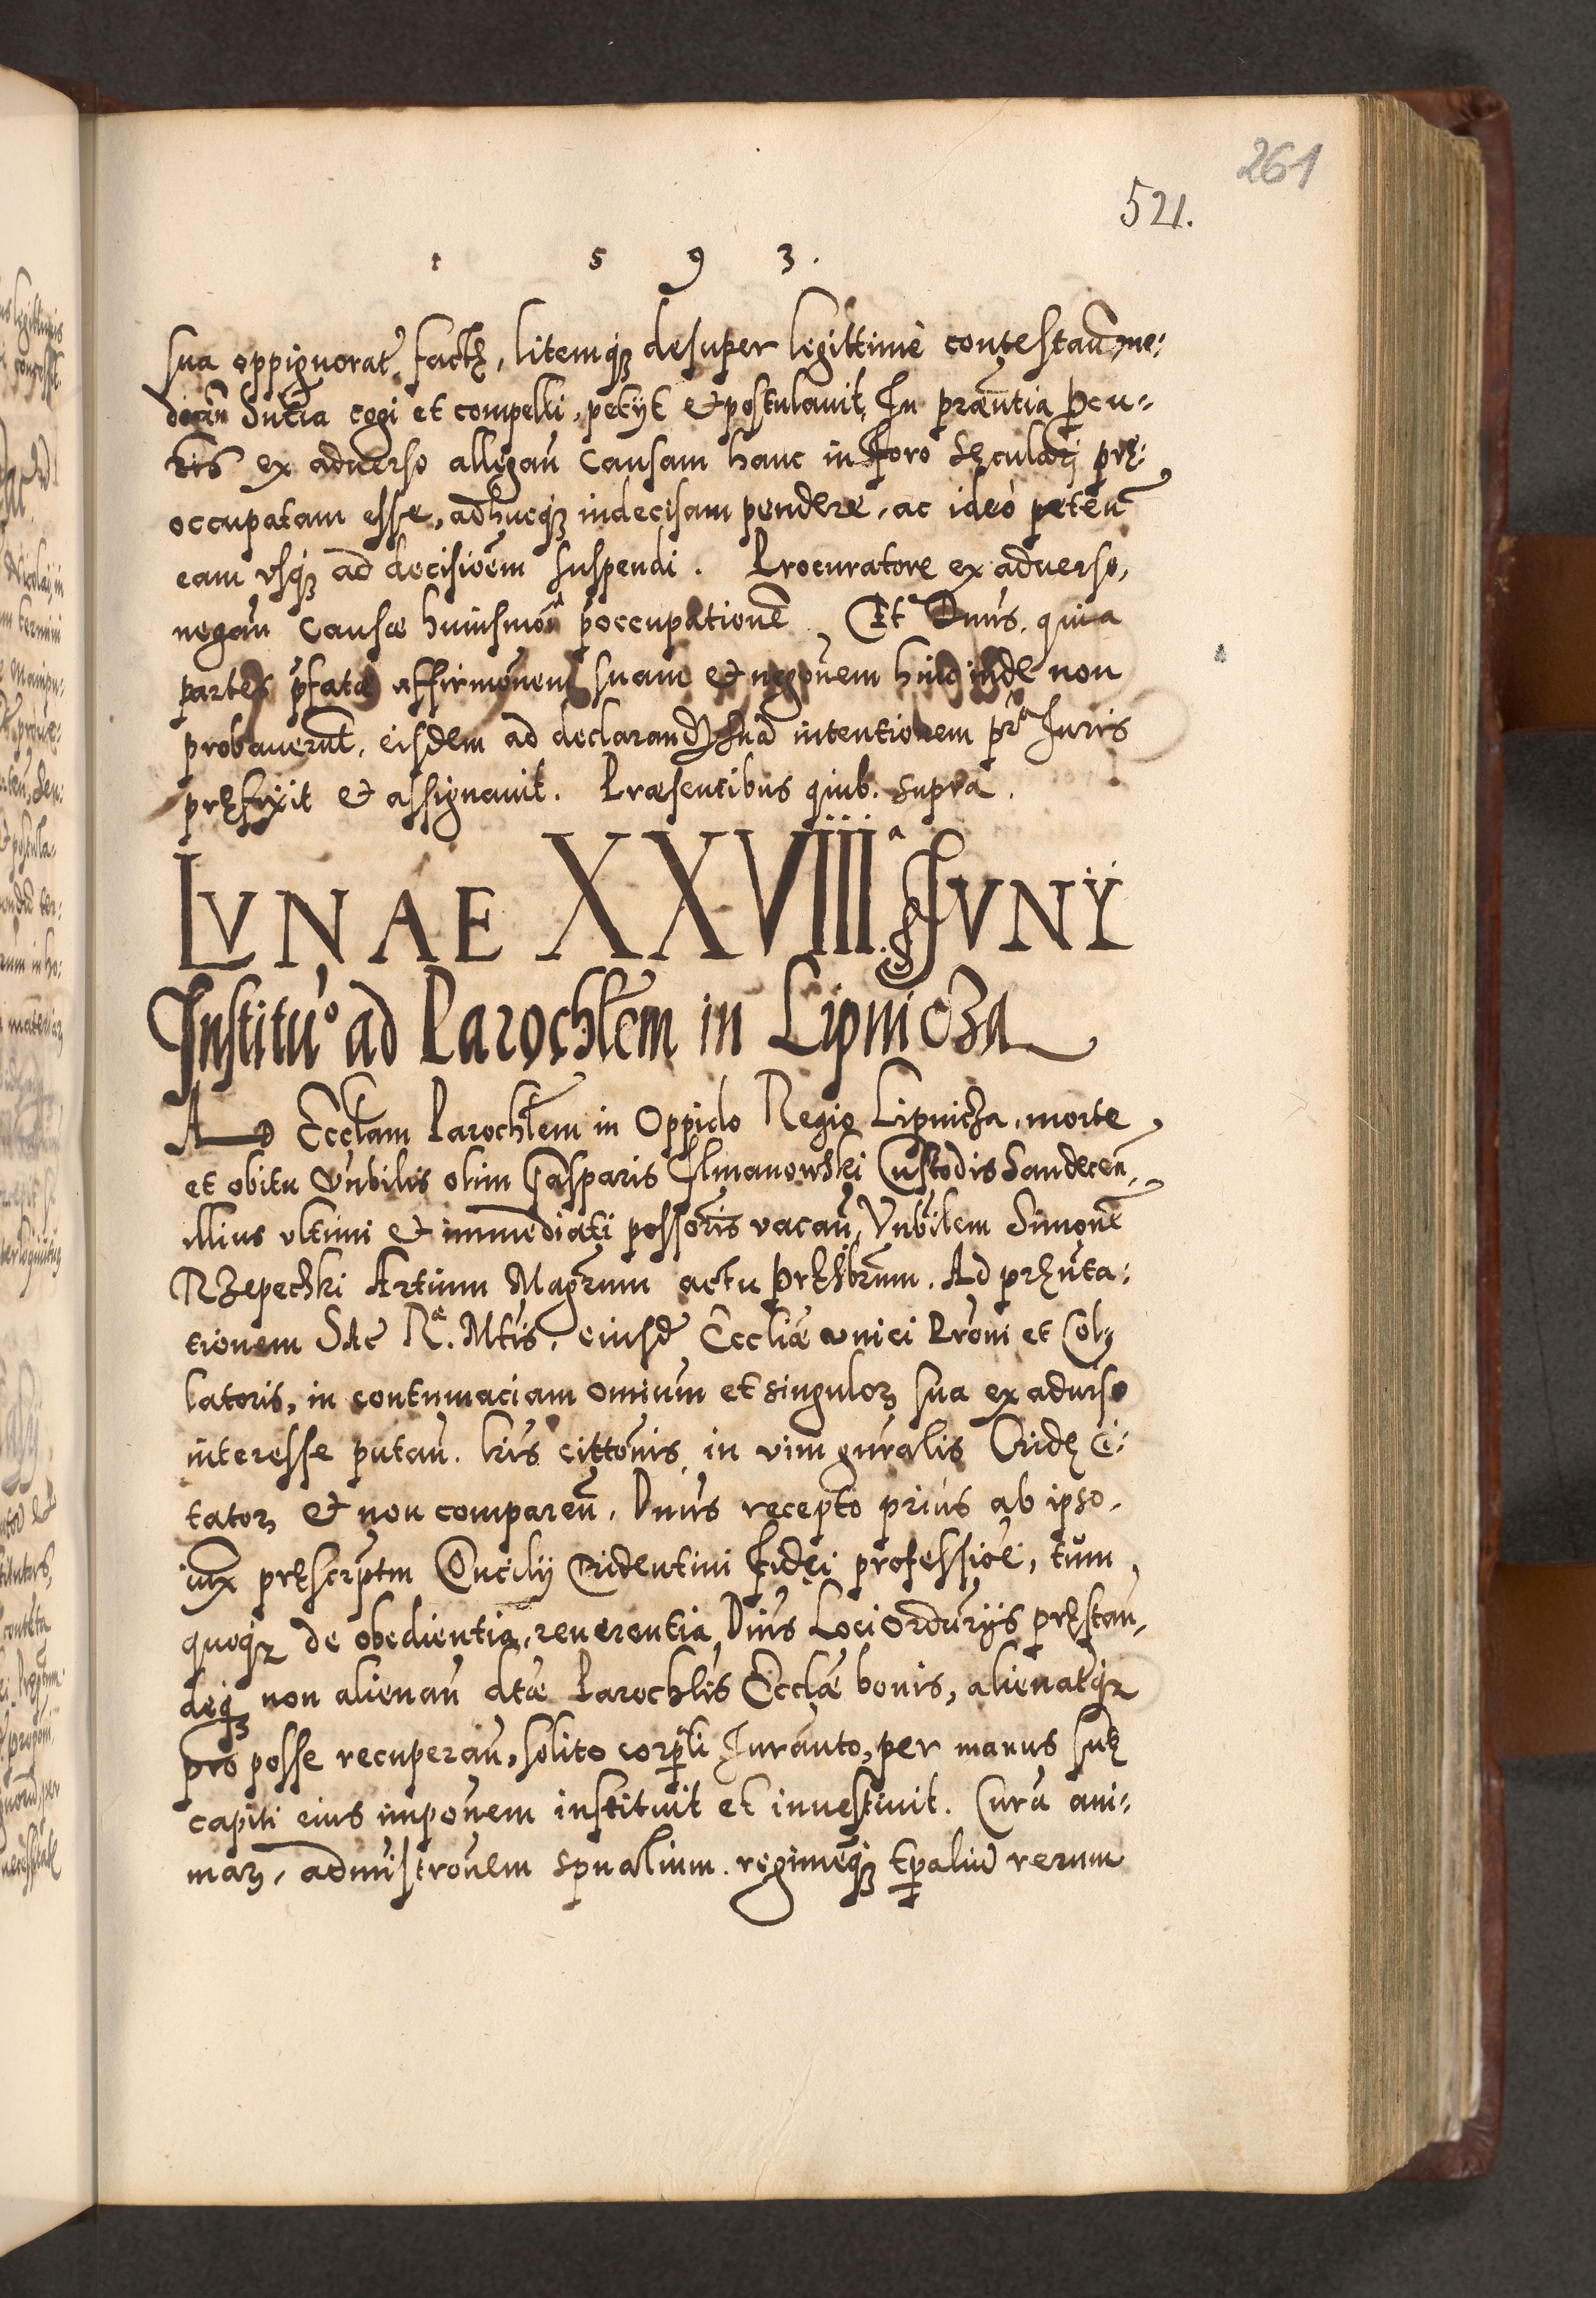 261
521.
1 5 9 3.
sua oppignorat. factȩ, litemqȝ desuper legittimè contestan̄, me-
dian̄ Sn̄tia cogi et compelli, petijt et postulauit, In præn̄tia pcu-
ris ex aduerso allegan̄ Causam hanc in Foro Sęculari prę-
occupatam esse, adhucqȝ indecisam pendere, ac ideò peten̄
eam vsqȝ ad decisioēm suspendi. Procuratore ex aduerso,
negan̄ Causæ huiusmōi p̄occupationē. Et Dn̄us, quia
partes p̄fatæ affirmōnem suam et negōnem hinc inde non
probauerūt, eisdem ad declarand suā intentionem pr̄ā Iuris
pręfixit et assignauit. Præsentibus quib. supra.
LVNAE XXVIIIIᵃ IVNŸ
Institu͞o ad Parochl̄em in Lipnicza
AD Eccl̄am Parochl̄em in Oppido Regio Lipnicza, morte
et obitu Vn̄bilis olim Casparis Ilmanowski Custodis Sandecen̄,
illius vltimi et immediati possoris vacan̄, Vn̄bilem Simonē
Rzepeczki Artium Magr̄um actu pręsbr̄um. Ad pręn̄ta-
tionem Sac Rᵉ. Mtis, eiusd̄ Eccliæ vnici Prōni et Col-
latoris, in contumaciam om̄ium et singuloꝝ sua ex adur̄so
interesse putan̄. lr̄is citt̄onis in vim gn̄ralis Cridę Ci-
tatoꝝ et non comparen̄. Dn̄us recepto prius ab ipso,
iux pręscrip̄tm Concilij Tridentini fidei professiōe, tum
quoqȝ de obedientia, reuerentia Dn̄is Loci Ordn̄rijs pręstan-
deqȝ non alienan̄ dtæ Parochl̄is Ecclæ bonis, alienatqȝ
pro posse recuperan̄, solito corpl̄i Iuran̄to, per manus suę
capiti eius impōnem instituit et inuestiuit. Curā ani-
maꝝ, admīstrōnem spualium, regimēqȝ tp̄aliū rerum